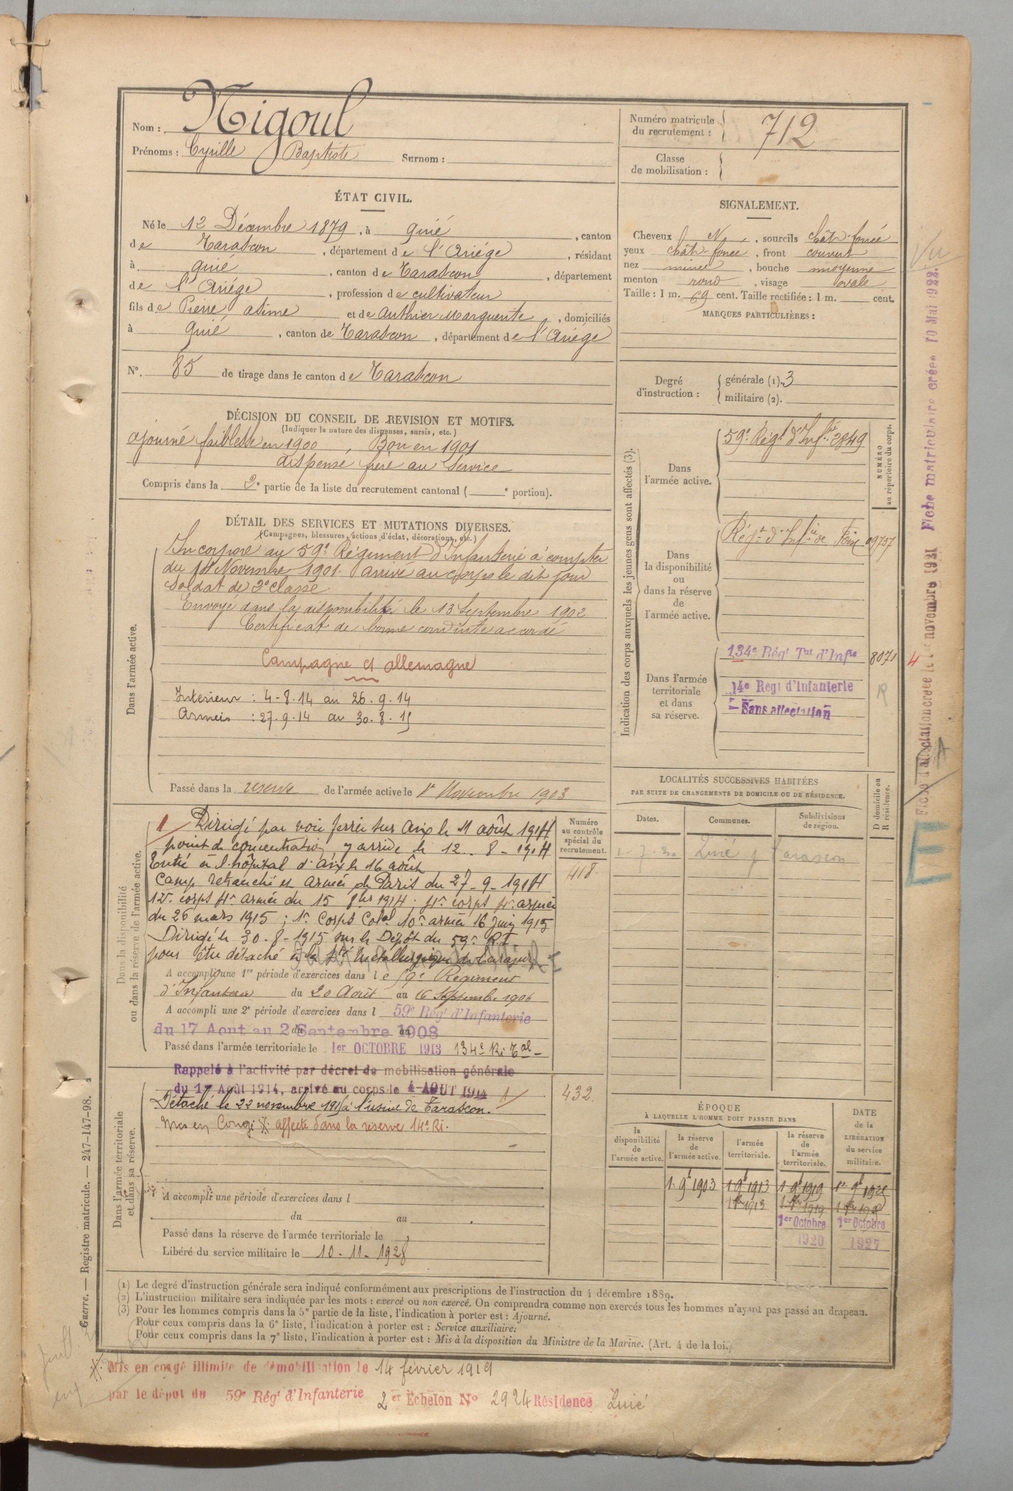 Nom : Nigoul
Prénoms : Cyrille Baptiste Surnom :
Numéro matricule du recrutement : 712
Classe de mobilisation :
ÉTAT CIVIL.
Né le 12 Décembre 1879, à Quié, canton
de Tarascon, département de l'Ariége, résidant
à Quié, canton de Tarascon, département
de l'Ariége, profession de cultivateur
fils de Pierre et de Authier Marguerite, domiciliés
à Quié, canton de Tarascon, département de l'Ariége
N° 85 de tirage dans le canton de Tarascon
SIGNALEMENT.
Cheveux N, sourcils chât foncé
yeux chât foncé, front couvert
nez mince, bouche moyenne
menton rond, visage ovale
Taille : 1 m. 69 cent. Taille rectifiée : 1 m. cent.
MARQUES PARTICULIÈRES :
Degré d'instruction : générale (1). 3
militaire (2).
DÉCISION DU CONSEIL DE REVISION ET MOTIFS.
(Indiquer la nature des dispenses, sursis, etc.)
ajourné faiblesse en 1900 Bon en 1901
dispensé frère au service
Compris dans la 2e partie de la liste du recrutement cantonal ( e portion).
DÉTAIL DES SERVICES ET MUTATIONS DIVERSES.
(Campagnes, blessures, actions d'éclat, décorations, etc.)
Dans l'armée active.
Incorporé au 59e Régiment d'Infanterie à compter
du 14 Novembre 1901. arrivé au corps le dit jour
soldat de 2e classe
Envoyé dans la disponibilité le 13 Septembre 1902
Certificat de bonne conduite accordé
Campagne ct allemagne
Interieur : 4-8-14 au 26.9.14
Armées : 27.9.14 au 30.8.15
Passé dans la reserve de l'armée active le 1er Novembre 1903
Indication des corps auxquels les jeunes gens sont affectés (3).
NUMÉRO au répertoire du corps.
Dans l'armée active.
59e Régt d'Infie 2849
Dans la disponibilité ou dans la réserve de l'armée active.
Régt d'Infie de Foix
Dans l'armée territoriale et dans sa réserve.
134e Régt Tial d'Infie 8071
14e Régt d'Infanterie
Sans affectation
R
LOCALITÉS SUCCESSIVES HABITÉES
PAR SUITE DE CHANGEMENTS DE DOMICILE OU DE RÉSIDENCE.
Dates.
Communes.
Subdivisions de région.
D domicile ou R résidence.
Quié Tarascon
Dans la disponibilité ou dans la réserve de l'armée active.
Numéro au contrôle spécial du recrutement.
418
Dirigé par voie ferrée sur Aix le 11 août 1914
point de concentration y arrivé le 12 - 8 - 1914
Entré à l'hôpital d'Aix le 16 août
Camp retranché et armée de Paris du 27-9-1914
4e corps
du 26 mars 1915 ; 1er Corps Cal 10e armée 16 Juin 1915
Dirigé le 30-8-1915 sur le Dépôt du 59e R.I.
pour être détaché à la Sté Métallurgique de Tarascon
A accompli une 1re période d'exercices dans le 59e Régiment
d'Infanterie du 20 Août au 16 Septembre 1906
A accompli une 2e période d'exercices dans l 59e Régt d'Infanterie
du 17 Aout au 2 Septembre 1908
Passé dans l'armée territoriale le 1er OCTOBRE 1913 134e Ri Tal
Dans l'armée territoriale et dans sa réserve.
Rappelé à l'activité par décret de mobilisation générale
du 1er Août 1914, arrivé au corps le 4 AOUT 1914
Détaché le 22 novembre 1915 à l'usine de Tarascon.
Mis en Congé affecté dans la réserve 14e Ri.
432
A accompli une période d'exercices dans l
du au
Passé dans la réserve de l'armée territoriale le
Libéré du service militaire le 10-11-1928
ÉPOQUE
À LAQUELLE L'HOMME DOIT PASSER DANS
la disponibilité de l'armée active.
la réserve de l'armée active.
l'armée territoriale.
la réserve de l'armée territoriale.
DATE de la LIBÉRATION du service militaire.
1 9bre 1903
1 9bre 1913
1 9bre 1919
1er Octobre 1920
1er Octobre 1927
(1) Le degré d'instruction générale sera indiqué conformément aux prescriptions de l'instruction du 4 décembre 1889.
(2) L'instruction militaire sera indiquée par les mots : exercé ou non exercé. On comprendra comme non exercés tous les hommes n'ayant pas passé au drapeau.
(3) Pour les hommes compris dans la 5e partie de la liste, l'indication à porter est : Ajourné.
Pour ceux compris dans la 6e liste, l'indication à porter est : Service auxiliaire.
Pour ceux compris dans la 7e liste, l'indication à porter est : Mis à la disposition du Ministre de la Marine. (Art. 4 de la loi.)
Mis en congé illimité de démobilisation le 14 fevrier 1919
par le dépot du 59e Régt d'Infanterie 2er Echelon No 2924 Résidence Quié
Guerre. — Registre matricule. — 247-147-98.
Fiche matriculaire créée 10 Mai 1922.
Vu
E